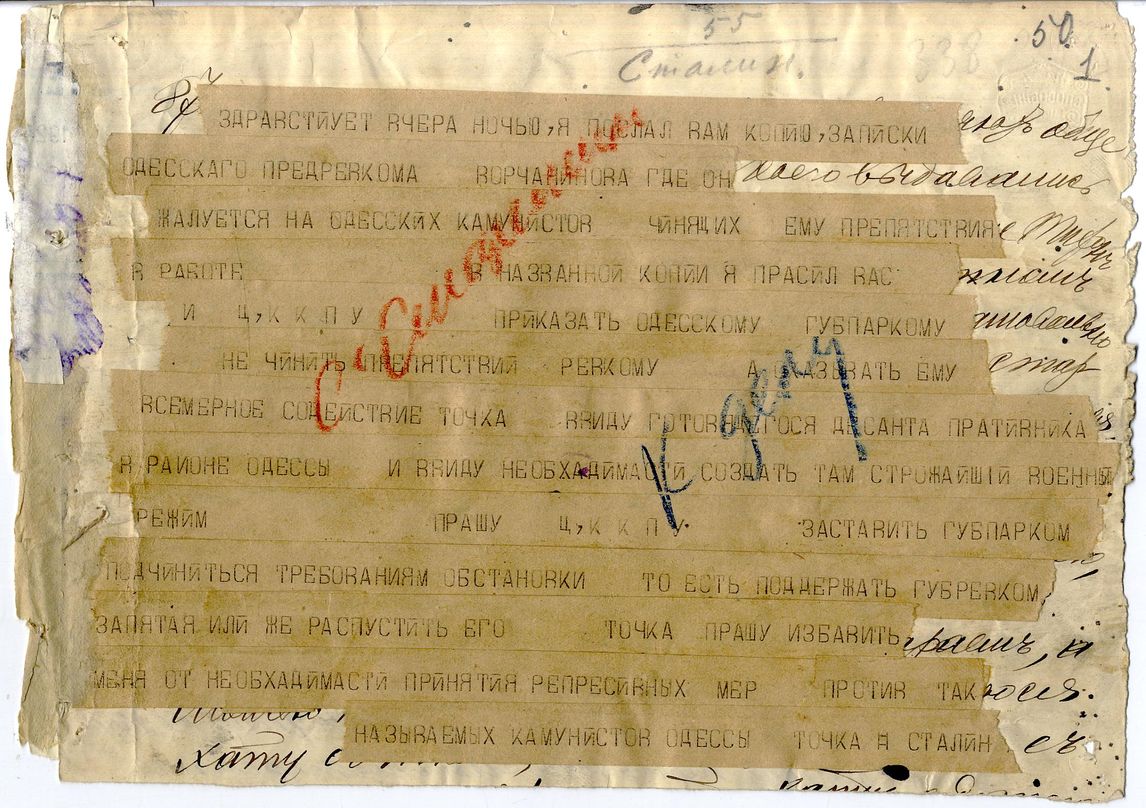 55
50
Сталин.
338
1
ЗДРАВСТЙУЕТ ВЧЕРА НОЧЬЮ,Я ПОСЛАЛ ВАМ КОПЙЮ,ЗАПЙСКИ
ОДЕССКАГО ПРЕДРЕВКОМА ВОРЧАНЙНОВА ГДЕ ОН
всего выдавались
ЖАЛУЕТСЯ НА ОДЕССКЙХ КАМУНЙСТОВ ЧЙНЯЩИХ ЕМУ ПРЕПЯТСТВИЯ
В РАБОТЕ В НАЗВАННОЙ КОПЙИ Я ПРАСЙЛ ВАС
И Ц,К К П У ПРЙКАЗАТЬ ОДЕССКОМУ ГУБПАРКОМУ
НЕ ЧЙНИТЬ ПРЕПЯТСТВИЙ РЕВКОМУ А ОКАЗЫВАТЬ ЕМУ
ВСЕМЕРНОЕ СОДЕЙСТВИЕ ТОЧКА ВВИДУ ГОТОВЯЩЕГОСЯ ДЕСАНТА ПРАТЙВНЙКА
В РАЙОНЕ ОДЕССЫ И ВВИДУ НЕОБХАДЙМАСТЙ СОЗДАТЬ ТАМ СТРОЖАЙШІЙ ВОЕННЫ
РЕЖЙМ ПРАШУ Ц,К К П У ЗАСТАВИТЬ ГУБПАРКОМ
к делу
ПОДЧИНИТЬСЯ ТРЕБОВАНИЯМ ОБСТАНОВКИ ТО ЕСТЬ ПОДДЕРЖАТЬ ГУБРЕВКОМ
ЗАПЯТАЯ ИЛИ ЖЕ РАСПУСТЙТЬ ЕГО ТОЧКА ПРАШУ ИЗБАВИТЬ
МЕНЯ ОТ НЕОБХАДЙМАСТЙ ПРЙНЯТЙЯ РЕПРЕСЙВНЫХ МЕР ПРОТИВ ТАК
НАЗЫВАЕМЫХ КАМУНЙСТОВ ОДЕССЫ ТОЧКА Я СТАЛЙН
хату